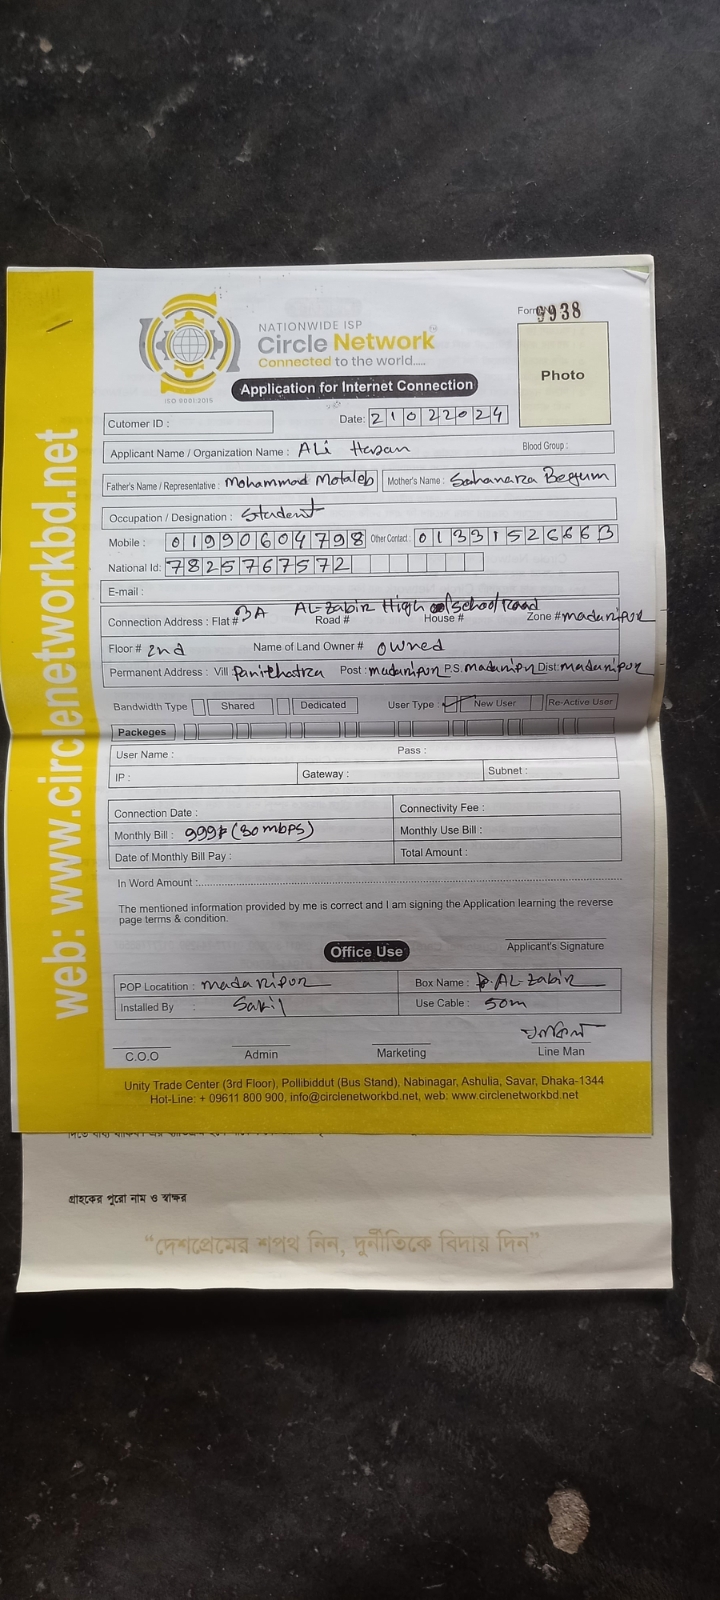 Form No 9938
NATIONWIDE ISP
Circle Network
Connected to the world.....
ISO 9001:2015
Application for Internet Connection
Photo
Cutomer ID :
Date: 21022024
Applicant Name / Organization Name : ALi Hasan Blood Group :
Father's Name / Representative : Mohammad Motaleb Mother's Name : Sahanara Begum
Occupation / Designation : Student
Mobile : 01990604798 Other Contact : 01331526663
National Id: 7825767572
E-mail :
Connection Address : Flat # 3A AL-Zabir High school Road Road # House # Zone # madaripur
Floor # 2nd Name of Land Owner # owned
Permanent Address : Vill Panichatra Post : madaripur P.S. madaripur Dist: madaripur
Bandwidth Type Shared Dedicated User Type : New User Re-Active User
Packeges
User Name : Pass :
IP : Gateway : Subnet :
Connection Date : Connectivity Fee :
Monthly Bill : 999৳ (30mbps) Monthly Use Bill :
Date of Monthly Bill Pay : Total Amount :
In Word Amount :
The mentioned information provided by me is correct and I am signing the Application learning the reverse
page terms & condition.
Applicant's Signature
Office Use
POP Locatition : madaripur Box Name : AL-zabir
Installed By : Sakil Use Cable : 50m
C.O.O Admin Marketing Line Man
Unity Trade Center (3rd Floor), Pollibiddut (Bus Stand), Nabinagar, Ashulia, Savar, Dhaka-1344
Hot-Line: + 09611 800 900, info@circlenetworkbd.net, web: www.circlenetworkbd.net
web: www.circlenetworkbd.net
গ্রাহকের পুরো নাম ও স্বাক্ষর
“দেশপ্রেমের শপথ নিন, দুর্নীতিকে বিদায় দিন”